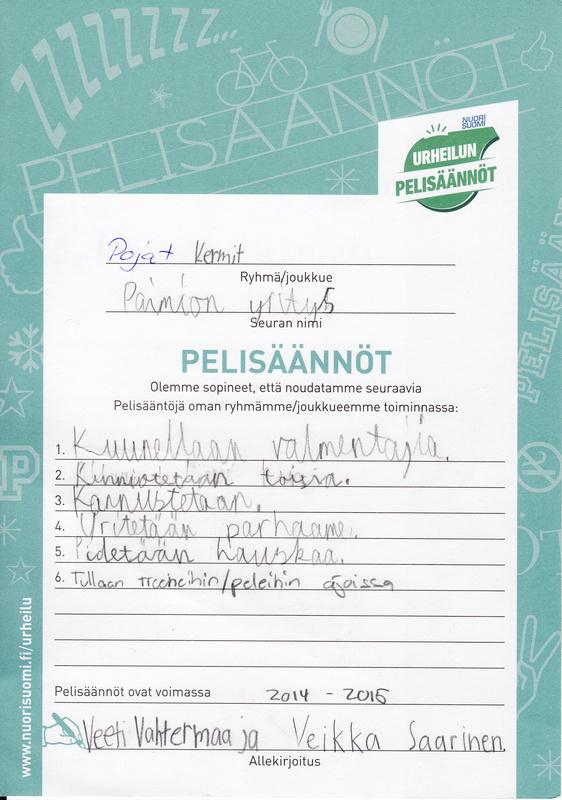 ZZZZZZZZ...
PELISÄÄNNÖT
NUORI
SUOMI
URHEILUN
PELISÄÄNNÖT
Pojat Kermit
Ryhmä/joukkue
Paimion yritys
Seuran nimi
PELISÄÄNNÖT
Olemme sopineet, että noudatamme seuraavia
Pelisääntöjä oman ryhmämme/joukkueemme toiminnassa:
1. Kuunellaan valmentajia.
2. toisia.
3. Kannustetaan.
4. Yritetään parhaame.
5. Pidetään hauskaa.
6. Tullaan treeneihin/peleihin ajoissa
Pelisäännöt ovat voimassa 2014 - 2015
Veeti Valtermaa ja Veikka Saarinen.
Allekirjoitus
www.nuorisuomi.fi/urheilu